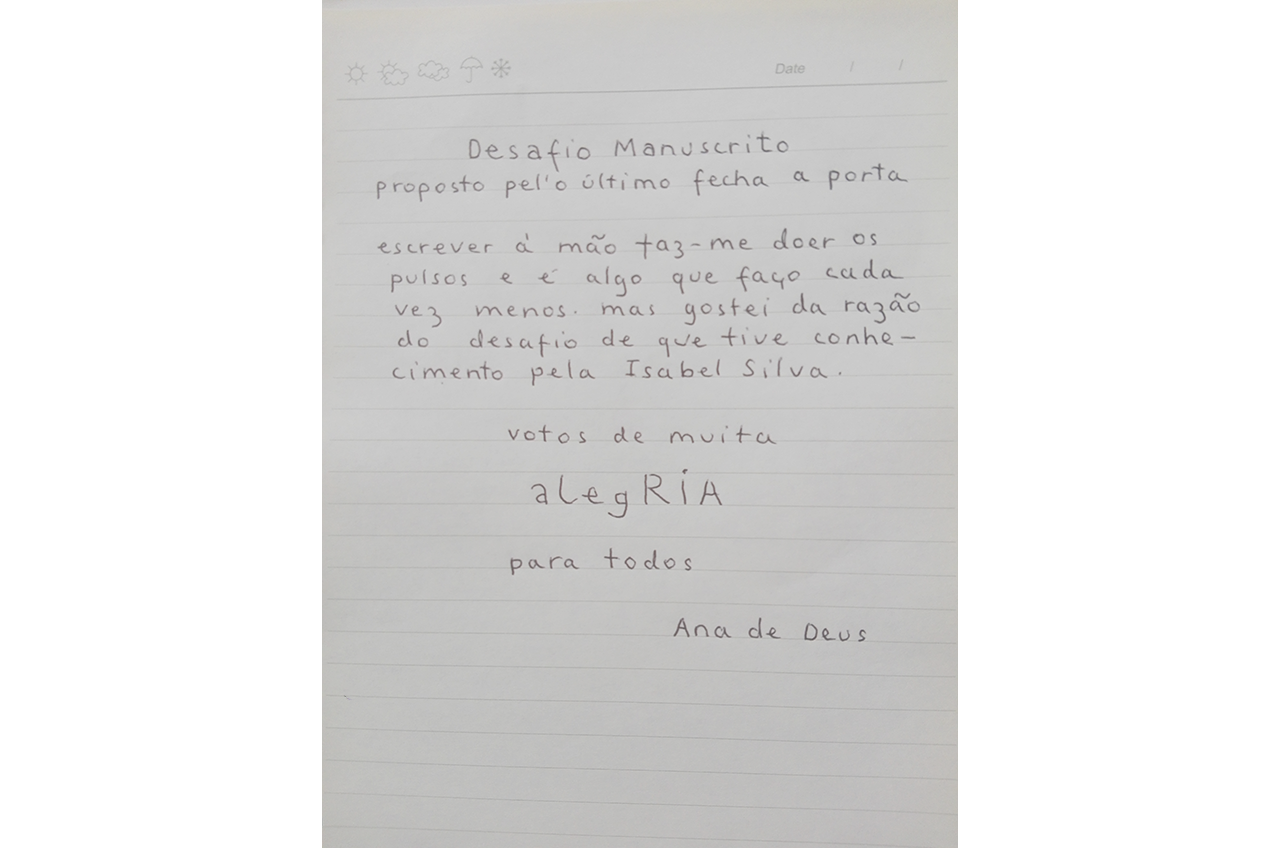 Date / /
Desafio Manuscrito
proposto pel'o último fecha a porta
escrever á mão faz-me doer os
pulsos e é algo que faço cada
vez menos. mas gostei da razão
do desafio de que tive conhe-
cimento pela Isabel Silva.
votos de muita
alegRIA
para todos
Ana de Deus